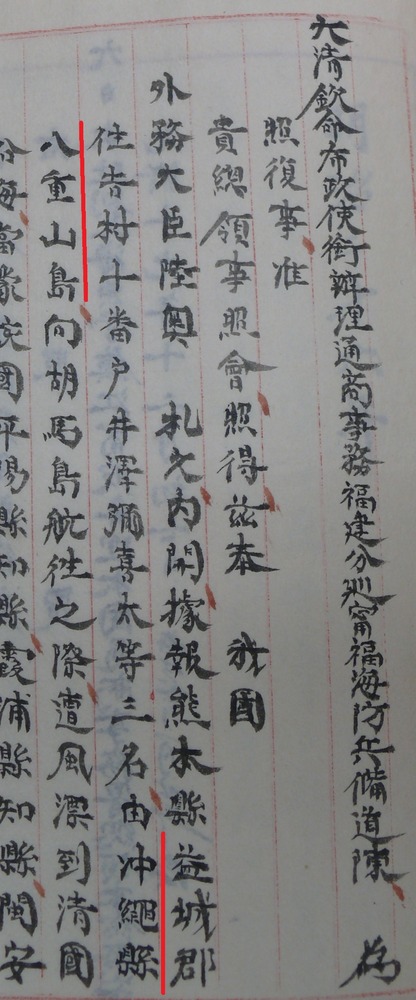 大清欽命布政使銜辦理通商事務福建分巡甯福海防兵備道陳　為
照復事准
貴總領事照會照得茲奉　我國
外務大臣陸奧　札文內開據報熊本縣益城郡
往吉村十番戶井澤彌喜太等三名由沖繩縣
八重山島向胡馬島航往之際遭風漂到清國
海當蒙 國平陽縣知縣霞浦縣知縣閩安